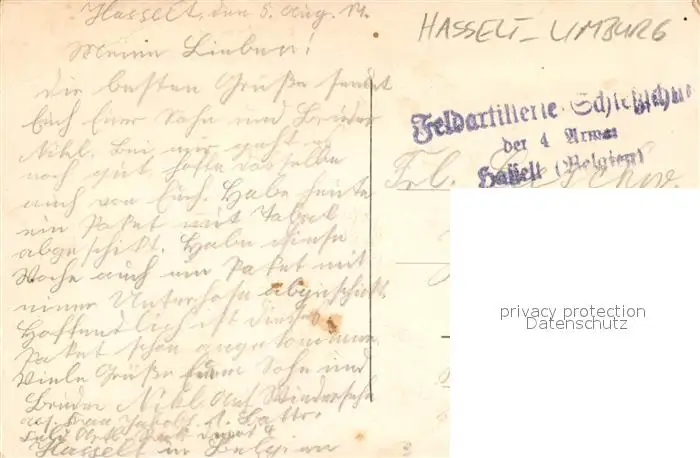 Hasselt, den 5. Aug. 17.
Meine Lieben!
Die besten Grüße sendet
Euch Euer Sohn und Bruder
Nikl. Bei mir geht es
noch gut hoffe dasselbe
auch von Euch. Habe heute
ein Paket mit Tabak
abgeschikt. Habe diese
Woche auch ein Paket mit
einer Unterhose abgeschickt
Hoffentlich ist dieses
Paket schon angekommen.
Viele Grüße Euer Sohn und
Bruder Nikl. Auf Wiedersehn
Hasselt in Belgien
HASSELT-LIMBURG
Feldartillerie-Schießschule
der 4 Armee
Hasselt (Belgien)
Frl.
privacy protection
Datenschutz